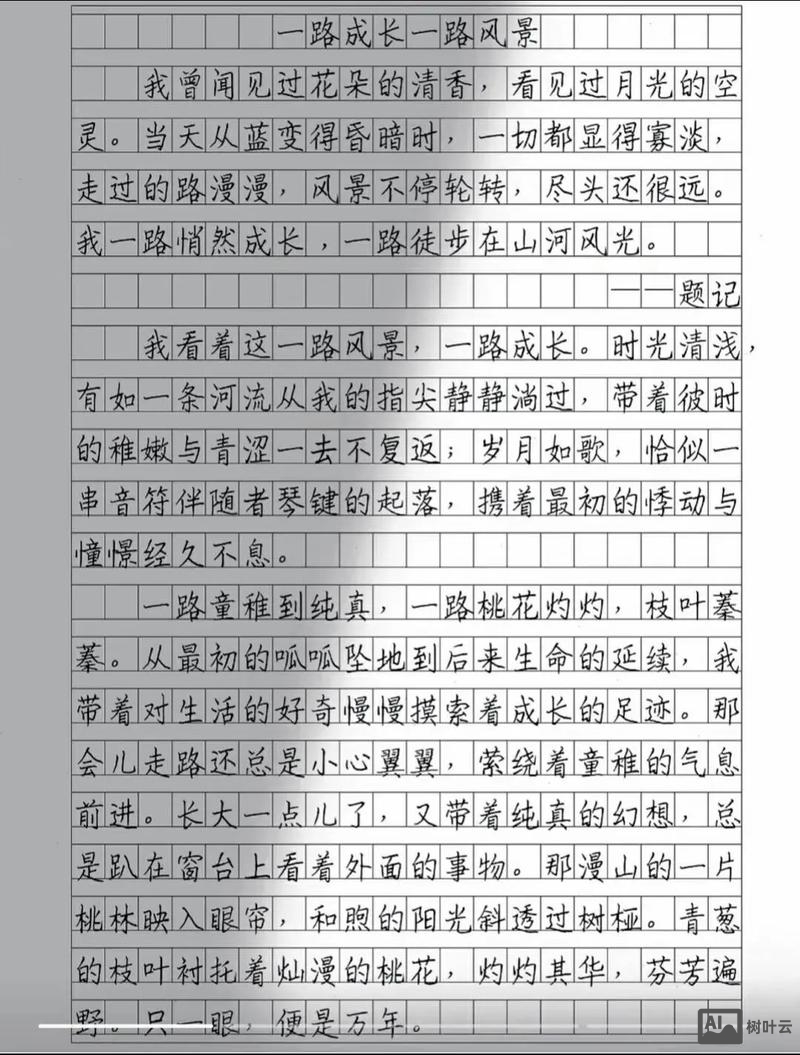 一路成长一路风景
我曾闻见过花朵的清香，看见过月光的空
灵。当天从蓝变得昏暗时，一切都显得寡淡，
走过的路漫漫，风景不停轮转，尽头还很远。
我一路悄然成长，一路徒步在山河风光。
——题记
我看着这一路风景，一路成长。时光清浅，
有如一条河流从我的指尖静静淌过，带着彼时
的稚嫩与青涩一去不复返；岁月如歌，恰似一
串音符伴随者琴键的起落，携着最初的悸动与
憧憬经久不息。
一路童稚到纯真，一路桃花灼灼，枝叶蓁
蓁。从最初的呱呱坠地到后来生命的延续，我
带着对生活的好奇慢慢摸索着成长的足迹。那
会儿走路还总是小心翼翼，萦绕着童稚的气息
前进。长大一点儿了，又带着纯真的幻想，总
是趴在窗台上看着外面的事物。那漫山的一片
桃林映入眼帘，和煦的阳光斜透过树桠。青葱
的枝叶衬托着灿漫的桃花，灼灼其华，芬芳遍
野。只一眼，便是万年。
AI 树叶云